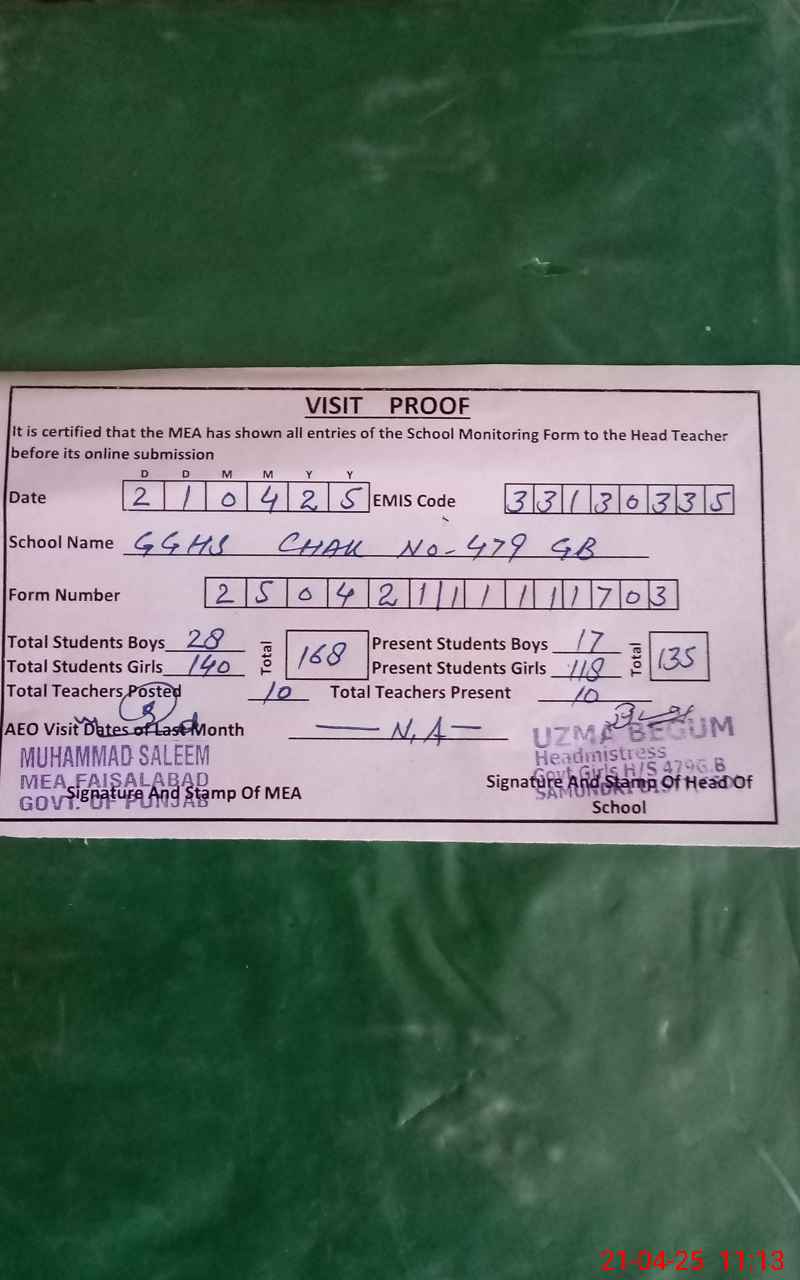 VISIT PROOF
It is certified that the MEA has shown all entries of the School Monitoring Form to the Head Teacher
before its online submission
D D M M Y Y
Date 2 1 0 4 2 5 EMIS Code 3 3 1 3 0 3 3 5
School Name GGHS CHAK NO-479 GB
Form Number 2 5 0 4 2 1 1 1 1 1 1 7 0 3
Total Students Boys 28 Total 168 Present Students Boys 17 Total 135
Total Students Girls 140 Present Students Girls 118
Total Teachers Posted 10 Total Teachers Present 10
AEO Visit Dates of Last Month N.A
MUHAMMAD SALEEM
MEA FAISALABAD
GOVT. OF PUNJAB
Signature And Stamp Of MEA
UZMA BEGUM
Headmistress
Govt Girls H/S 479G.B
SAMUNDRI
Signature And Stamp Of Head Of
School
21-04-25 11:13